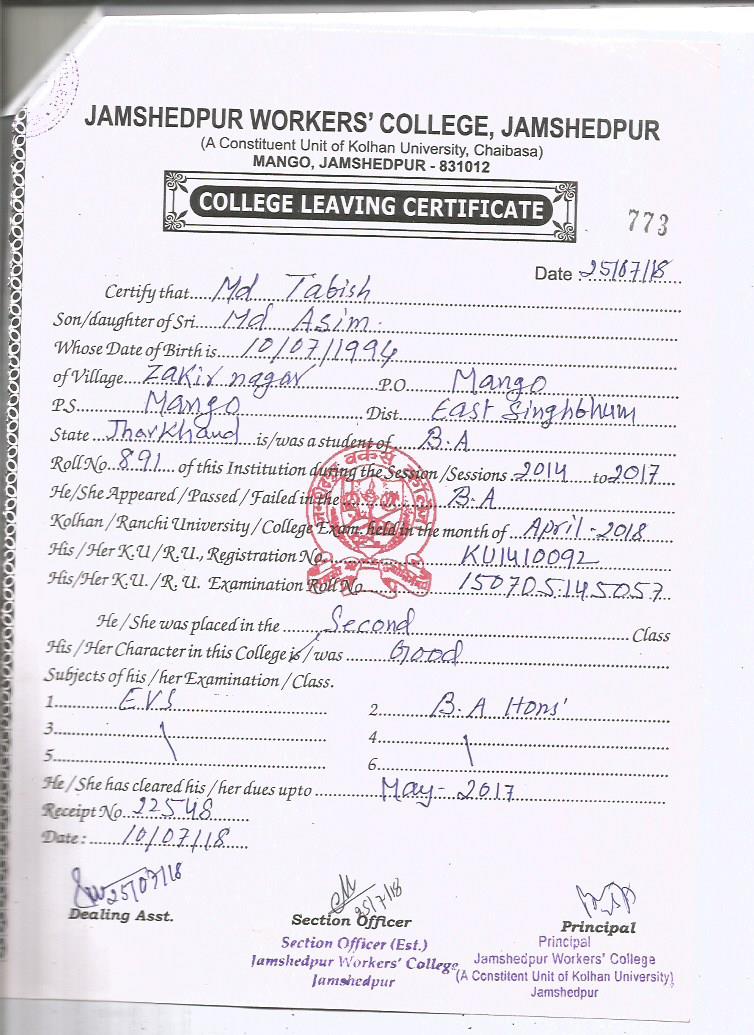 JAMSHEDPUR WORKERS' COLLEGE, JAMSHEDPUR
(A Constituent Unit of Kolhan University, Chaibasa)
MANGO, JAMSHEDPUR - 831012
COLLEGE LEAVING CERTIFICATE
773
Date : 25/07/18
Certify that.....Md Tabish
Son/daughter of Sri.....Md Asim.
Whose Date of Birth is...10/07/1994
of Village...Zakir nagar P.O. Mango
P.S. Mango Dist. East Singhbhum
State Jharkhand is/was a student of B.A
Roll No. 891 of this Institution during the Session /Sessions 2014 to 2017
He/She Appeared / Passed / Failed in the B.A
Kolhan / Ranchi University / College Exam. held in the month of April - 2018
His / Her K.U / R.U., Registration No. KU1410092
His/Her K.U. / R. U. Examination Roll No. 150705145057
He / She was placed in the Second Class
His / Her Character in this College is / was Good
Subjects of his / her Examination / Class.
1. EVS 2. B.A Hons'
3. 4.
5. 6.
He / She has cleared his / her dues upto May - 2017
Receipt No. 22548
Date : 10/07/18
25/07/18 25/7/18
Dealing Asst. Section Officer Principal
Section Officer (Est.)
Jamshedpur Workers' College
Jamshedpur
Principal
Jamshedpur Workers' College
(A Constitent Unit of Kolhan University)
Jamshedpur